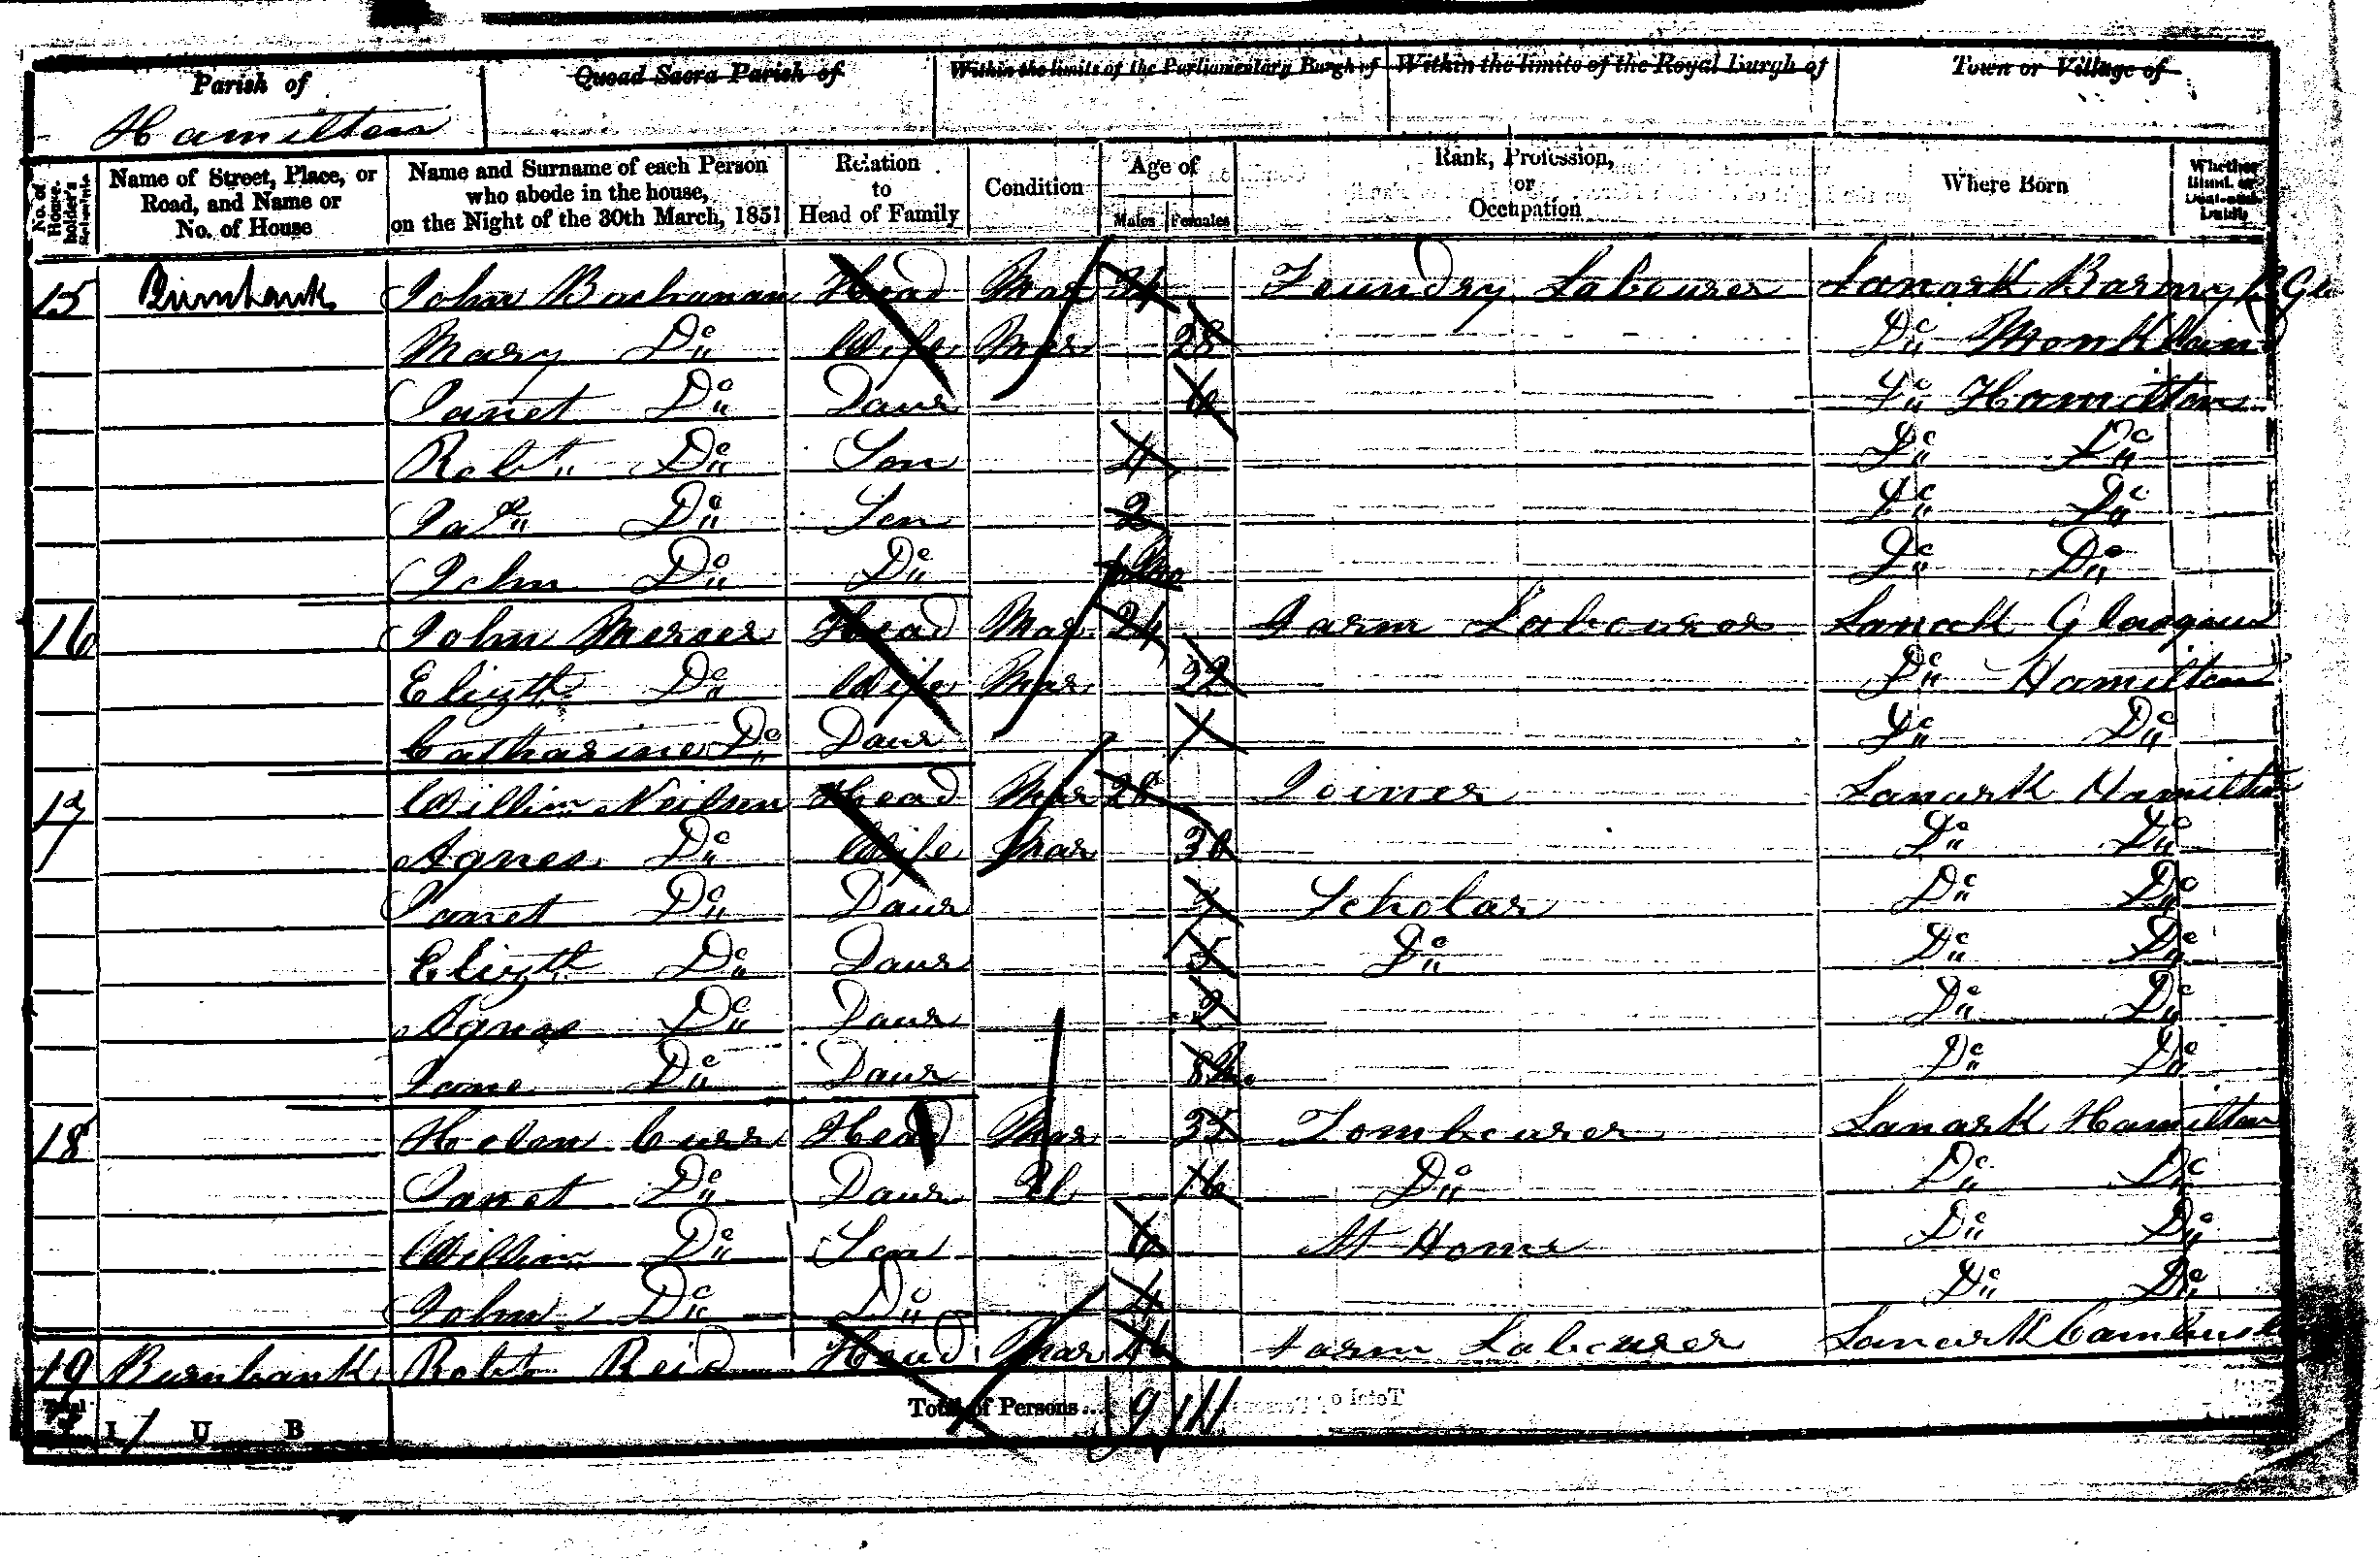 Parish of Quoad Sacra Parish of Within the limits of the Parliamentary Burgh of Within the limits of the Royal Burgh of Town or Village of
Hamilton
No. of House-holder's Schedule Name of Street, Place, or Road, and Name or No. of House Name and Surname of each Person who abode in the house, on the Night of the 30th March, 1851 Relation to Head of Family Condition Age of Males Females Rank, Profession, or Occupation Where Born Whether Blind, or Deaf-and-Dumb
15 Burnbank John Buchanan Head Mar 34 Foundry Labourer Lanark Barony
Mary Do Wife Mar 28 Do Monkland
Janet Do Daur 6 Do Hamilton
Robt Do Son 4 Do Do
Jas Do Son 2 Do Do
John Do Do Do Do
16 John Mercer Head Mar 24 Farm Labourer Lanark Glasgow
Elizth Do Wife Mar 22 Do Hamilton
Catharine Do Daur 1 Do Do
17 Willim Neilson Head Mar 28 Joiner Lanark Hamilton
Agnes Do Wife Mar 30 Do Do
Janet Do Daur 7 Scholar Do Do
Elizth Do Daur 5 Do Do Do
Agnes Do Daur 2 Do Do
Jane Do Daur 8 Mo Do Do
18 Helen Curr Head Mar 35 Tambourer Lanark Hamilton
Janet Do Daur U 16 Do Do Do
William Do Son 6 At Home Do Do
John Do Do 4 Do Do
19 Burnbank Robt Reid Head Mar 46 Farm Labourer Lanark
Total of I 1 U B Total of Persons... 9 11